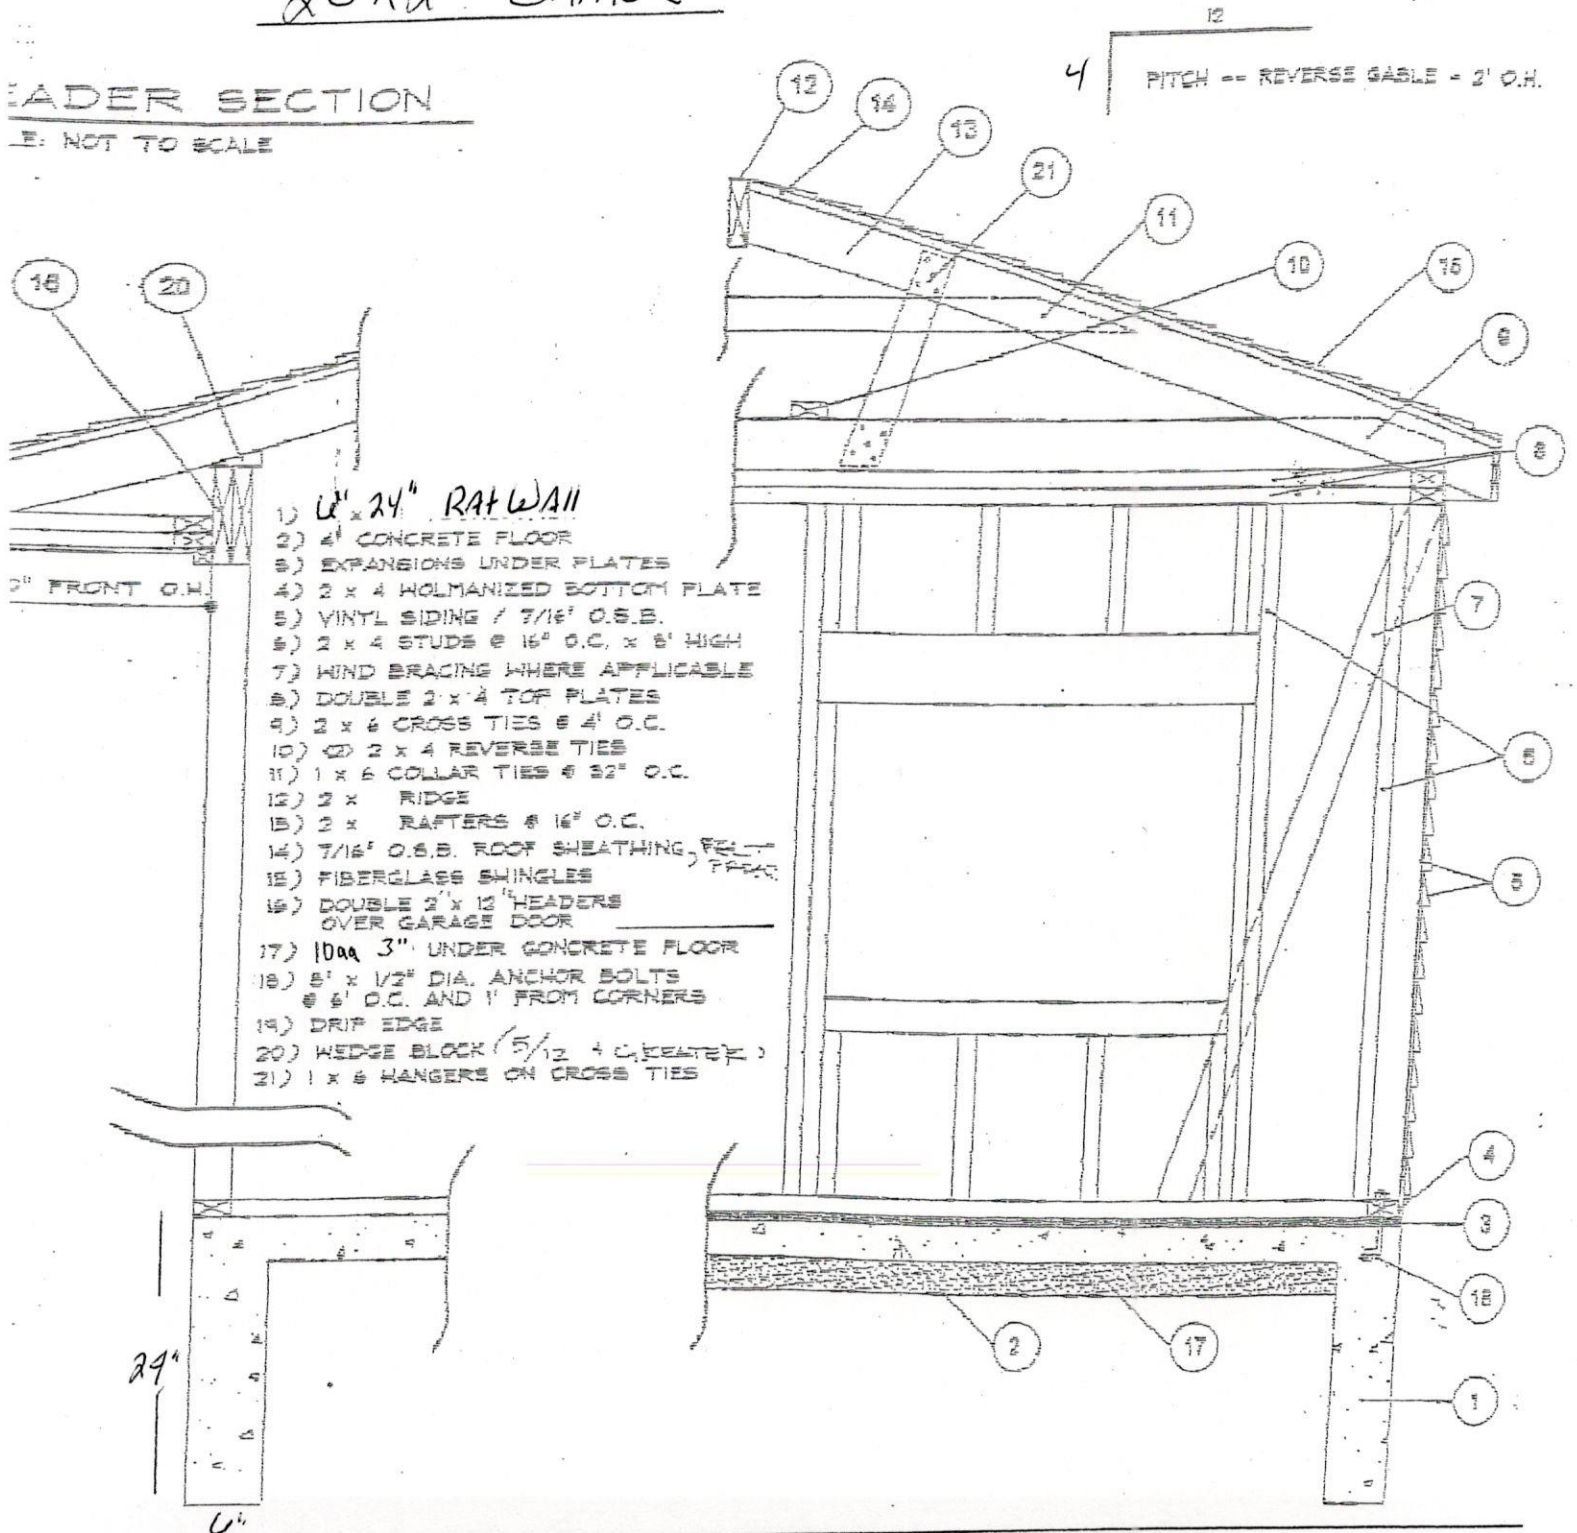 HEADER SECTION
NOT TO SCALE
12
4
PITCH -- REVERSE GABLE - 2' O.H.
12
14
13
21
11
10
15
9
8
16
20
FRONT O.H.
1) 6" x 24" RATWALL
2) 4" CONCRETE FLOOR
3) EXPANSIONS UNDER PLATES
4) 2 x 4 WOLMANIZED BOTTOM PLATE
5) VINYL SIDING / 7/16" O.S.B.
6) 2 x 4 STUDS @ 16" O.C. x 8' HIGH
7) WIND BRACING WHERE APPLICABLE
8) DOUBLE 2 x 4 TOP PLATES
9) 2 x 6 CROSS TIES @ 4' O.C.
10) (2) 2 x 4 REVERSE TIES
11) 1 x 6 COLLAR TIES @ 32" O.C.
12) 2 x RIDGE
13) 2 x RAFTERS @ 16" O.C.
14) 7/16" O.S.B. ROOF SHEATHING, FELT
15) FIBERGLASS SHINGLES
16) DOUBLE 2" x 12" HEADERS
OVER GARAGE DOOR
17) 10aa 3" UNDER CONCRETE FLOOR
18) 8" x 1/2" DIA. ANCHOR BOLTS
@ 6' O.C. AND 1' FROM CORNERS
19) DRIP EDGE
20) WEDGE BLOCK (5/12 + GREATER)
21) 1 x 6 HANGERS ON CROSS TIES
7
6
5
4
3
18
2
17
1
24"
6"